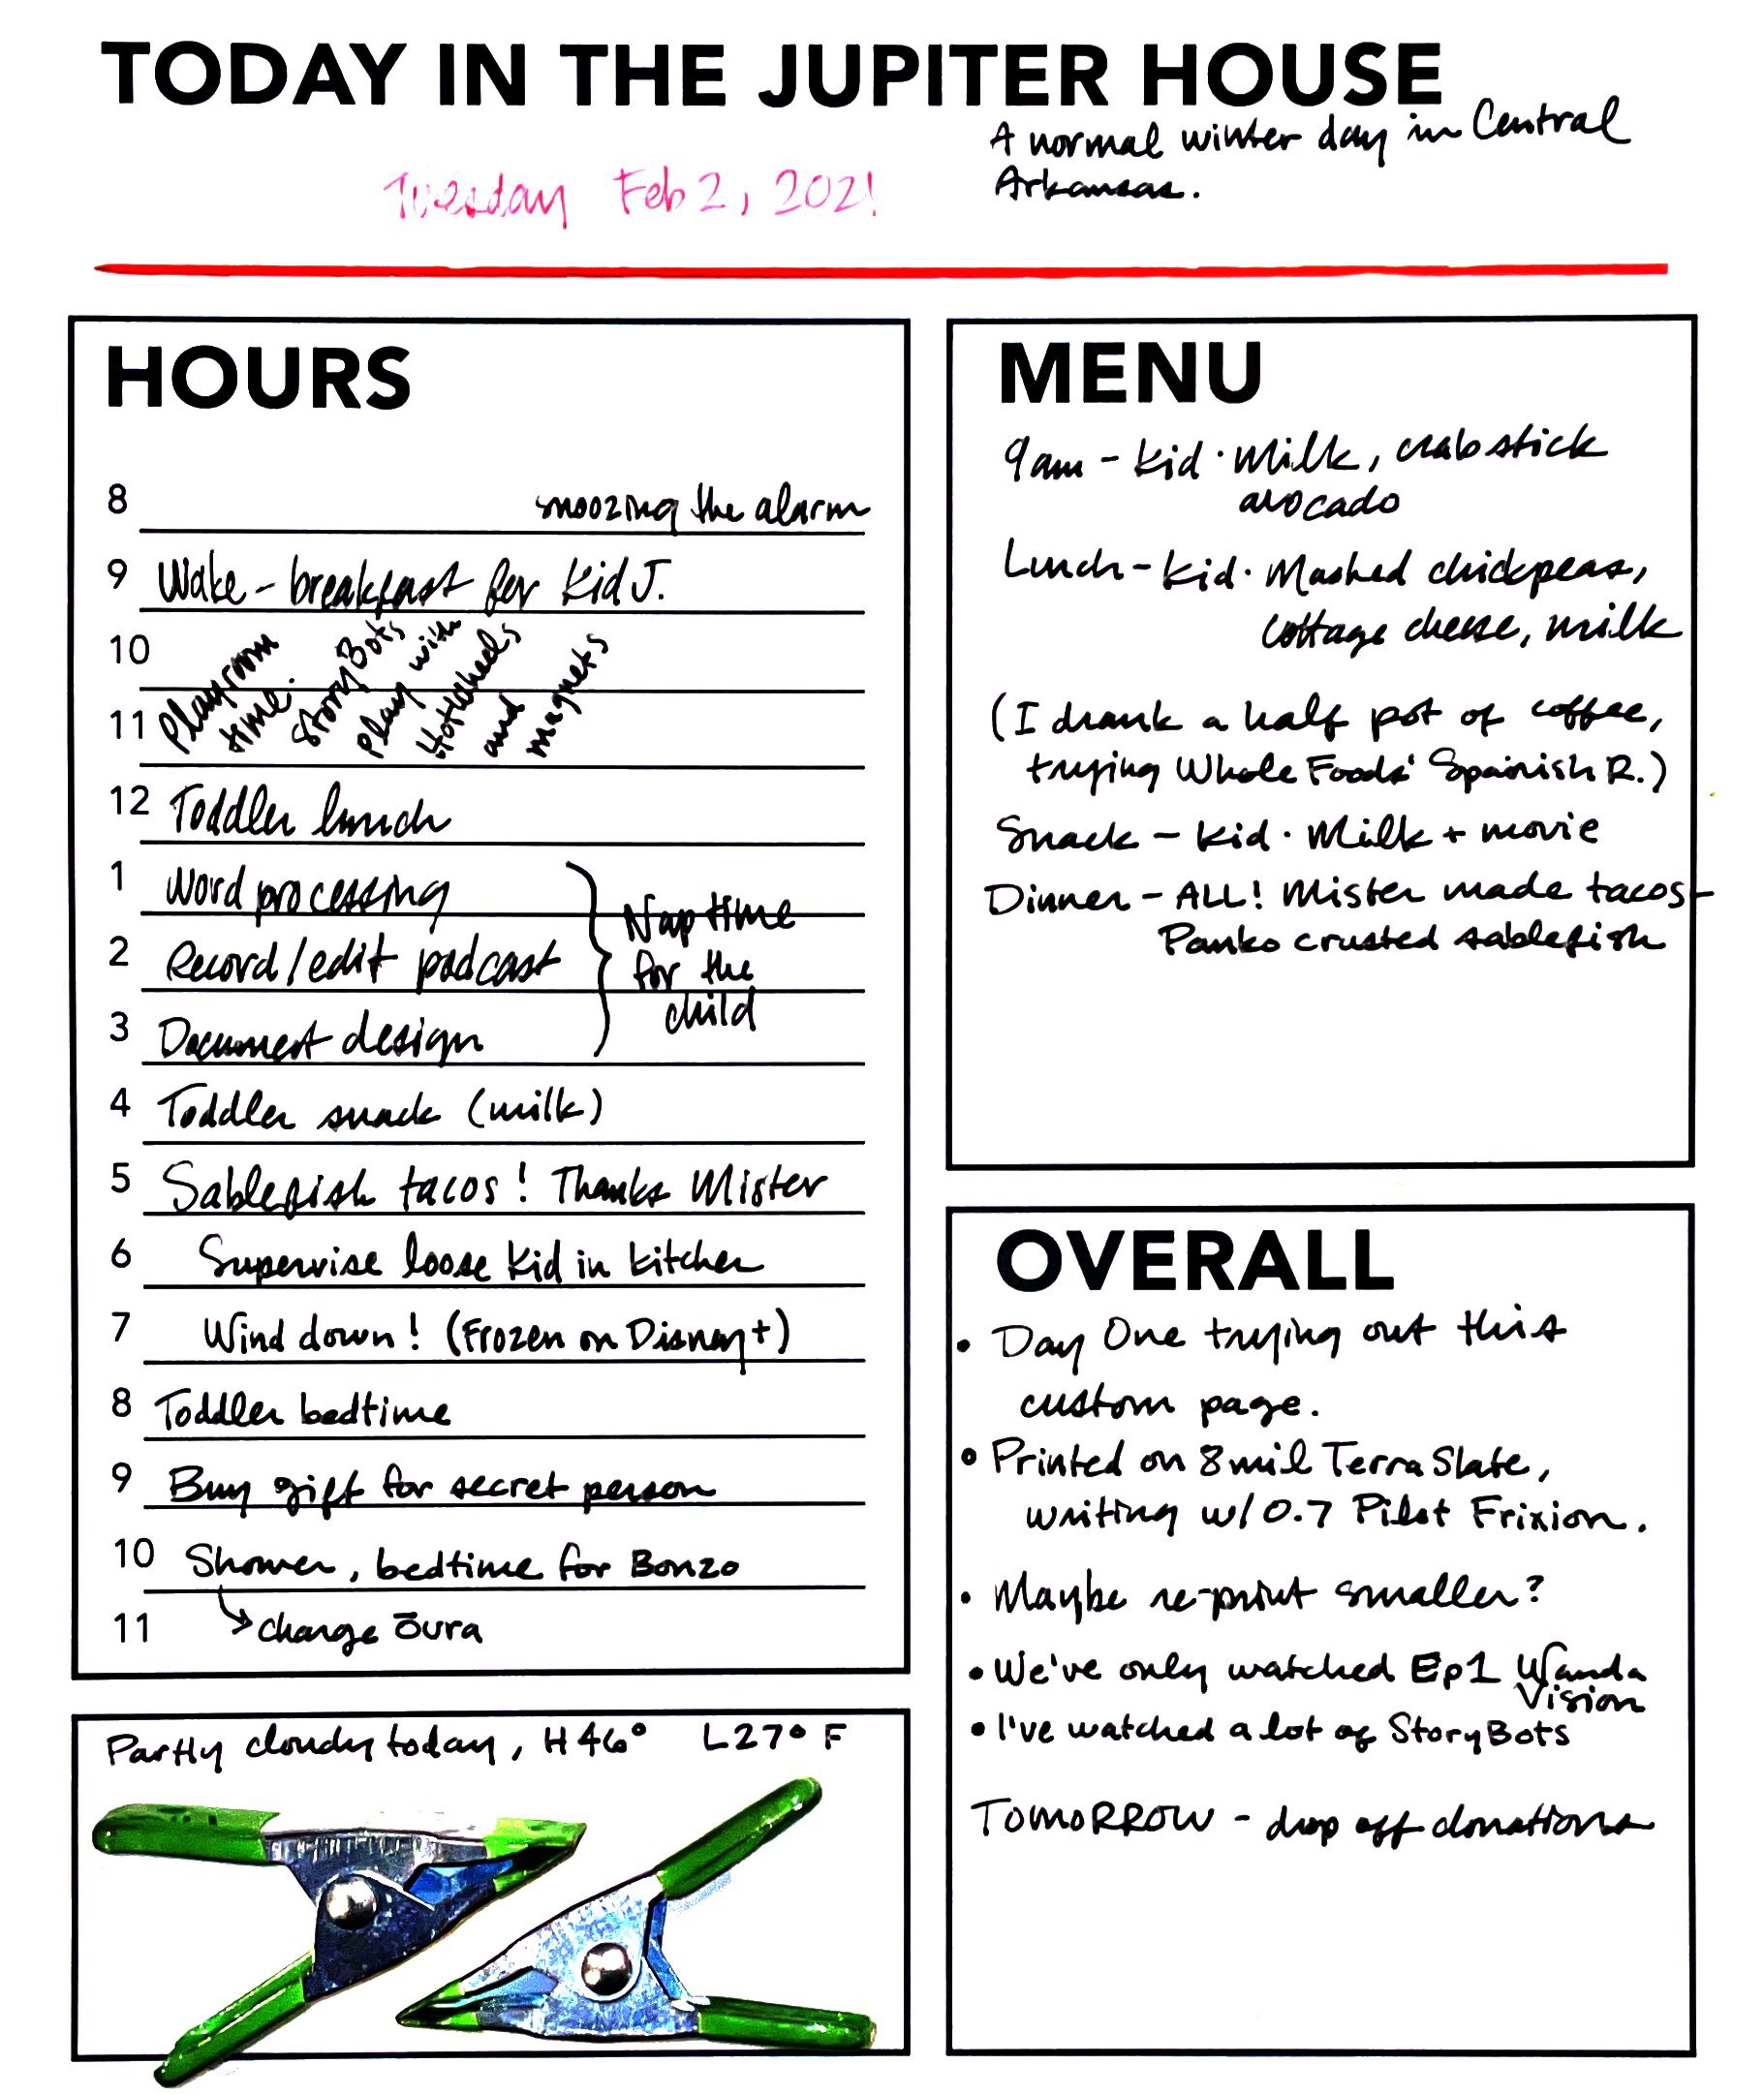 TODAY IN THE JUPITER HOUSE
A normal winter day in Central
Arkansas.
Tuesday Feb 2, 2021
HOURS
8 snoozing the alarm
9 Wake - breakfast for Kid J.
10
11
Playroom
time.
StoryBots
Play with
HotWheels
and
magnets
12 Toddler lunch
1 Word processing
2 Record/edit podcast
3 Document design
Nap time
for the
child
4 Toddler snack (milk)
5 Sablefish tacos! Thanks Mister
6 Supervise loose kid in kitchen
7 Wind down! (Frozen on Disney+)
8 Toddler bedtime
9 Buy gift for secret person
10 Shower, bedtime for Bonzo
11 ↳ change Ōura
Partly cloudy today, H 46° L 27° F
MENU
9am - Kid · Milk, crab stick
avocado
Lunch - Kid · Mashed chickpeas,
cottage cheese, milk
(I drank a half pot of coffee,
trying Whole Foods' Spanish R.)
Snack - Kid · Milk + movie
Dinner - ALL! Mister made tacos -
Panko crusted sablefish
OVERALL
• Day One trying out this
custom page.
• Printed on 8mil TerraSlate,
writing w/ 0.7 Pilot Frixion.
• Maybe re-print smaller?
• We've only watched Ep1 Wanda
Vision
• I've watched a lot of StoryBots
TOMORROW - drop off donations